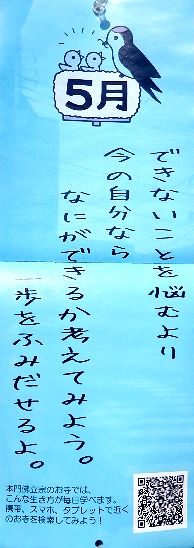 5月
できないことを悩むより
今の自分なら
なにができるか考えてみよう。
一歩をふみだせるよ。
本門佛立宗のお寺では、
こんな生き方が毎日学べます。
携帯、スマホ、タブレットで近く
のお寺を検索してみよう！